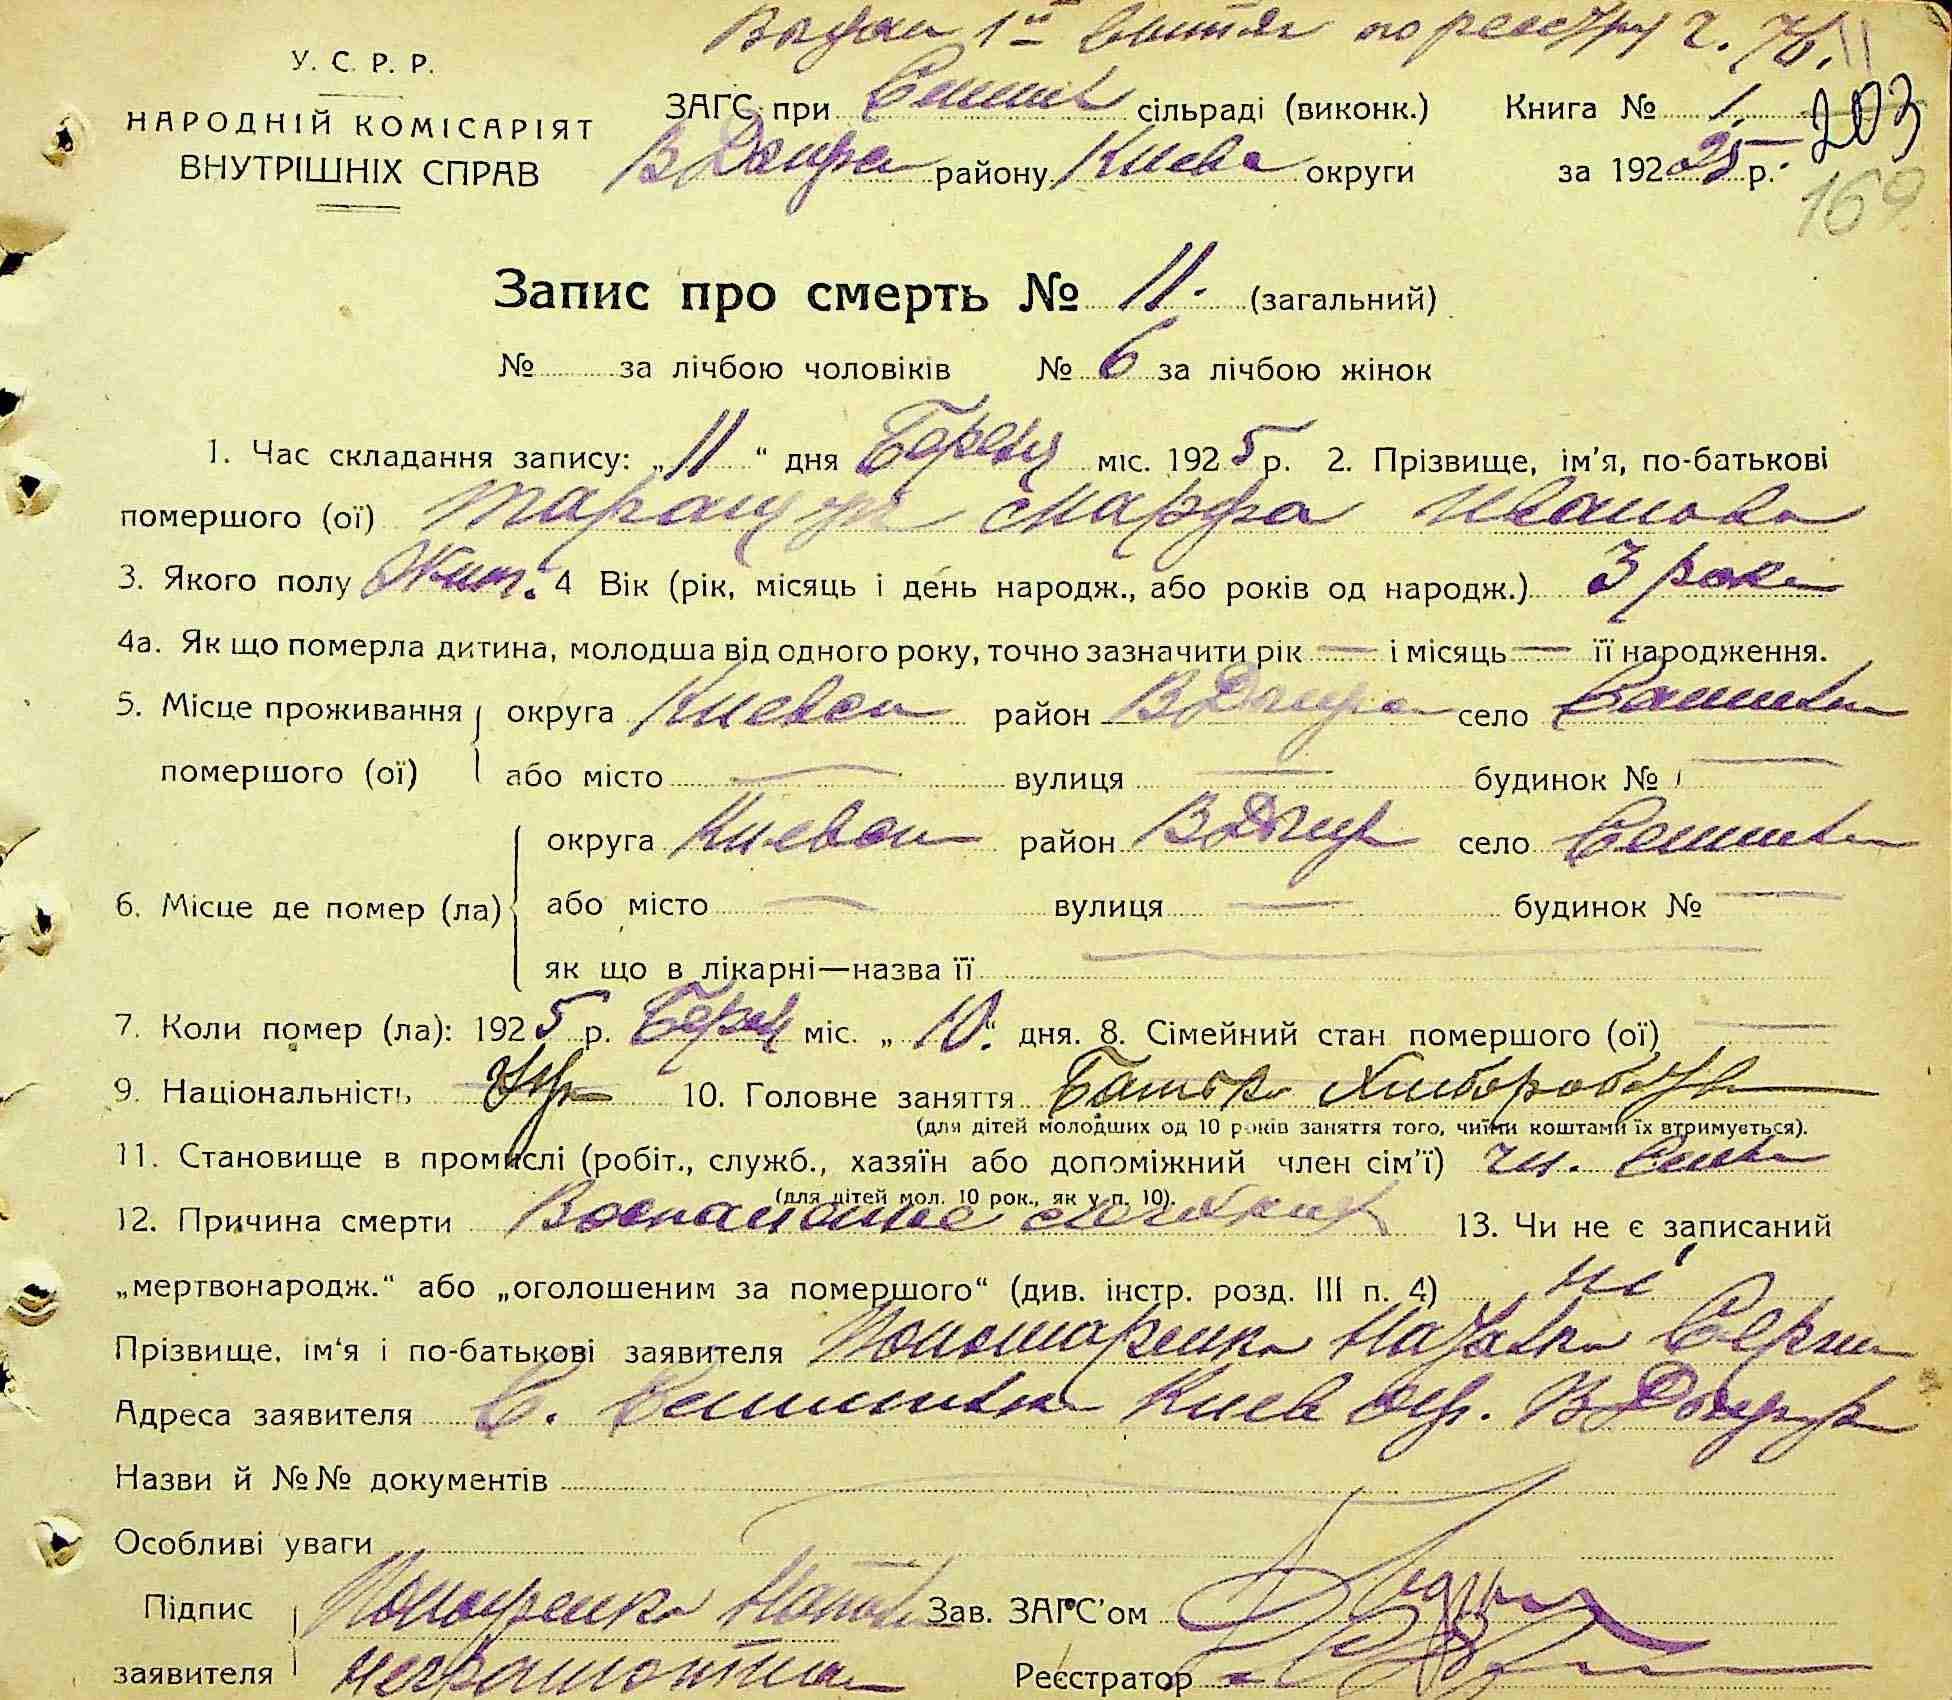 Видан 1й витяг по реєстру ч. 76.
У. С. Р. Р.
НАРОДНІЙ КОМІСАРІЯТ
ВНУТРІШНІХ СПРАВ
ЗАГС при сільраді (виконк.) Книга № 1. 203
В Димер району Києвс округи за 192 25 р. 169
Запис про смерть № 11. (загальний)
№ за лічбою чоловіків № 6 за лічбою жінок
1. Час складання запису: „11“ дня Березн міс. 1925 р. 2. Прізвище, ім'я, по-батькові
помершого (ої) Марфа Иванова
3. Якого полу Жит. 4 Вік (рік, місяць і день народж., або років од народж.) 3 роки
4а. Як що померла дитина, молодша від одного року, точно зазначити рік — і місяць — її народження.
5. Місце проживання округа Киевск район село
помершого (ої) або місто — вулиця — будинок № —
округа Киевск район село
6. Місце де помер (ла) або місто — вулиця — будинок № —
як що в лікарні—назва її —
7. Коли помер (ла): 1925 р. Берез міс. „10.“ дня. 8. Сімейний стан помершого (ої) —
9. Національність Укр 10. Головне заняття Батько Хлібороб
(для дітей молодших од 10 років заняття того, чиїми коштами їх втримується).
11. Становище в промислі (робіт., служб., хазяїн або допоміжний член сім'ї) чл.
(для дітей мол. 10 рок., як у п. 10).
12. Причина смерти Воспаление 13. Чи не є записаний
„мертвонародж.“ або „оголошеним за помершого“ (див. інстр. розд. III п. 4) ні
Прізвище, ім‘я і по-батькові заявителя Пономаренко Наталка Серги
Адреса заявителя С. Киев окр.
Назви й №№ документів
Особливі уваги
Підпис Пономаренко Натал Зав. ЗАГС'ом
заявителя неграмотна Реєстратор